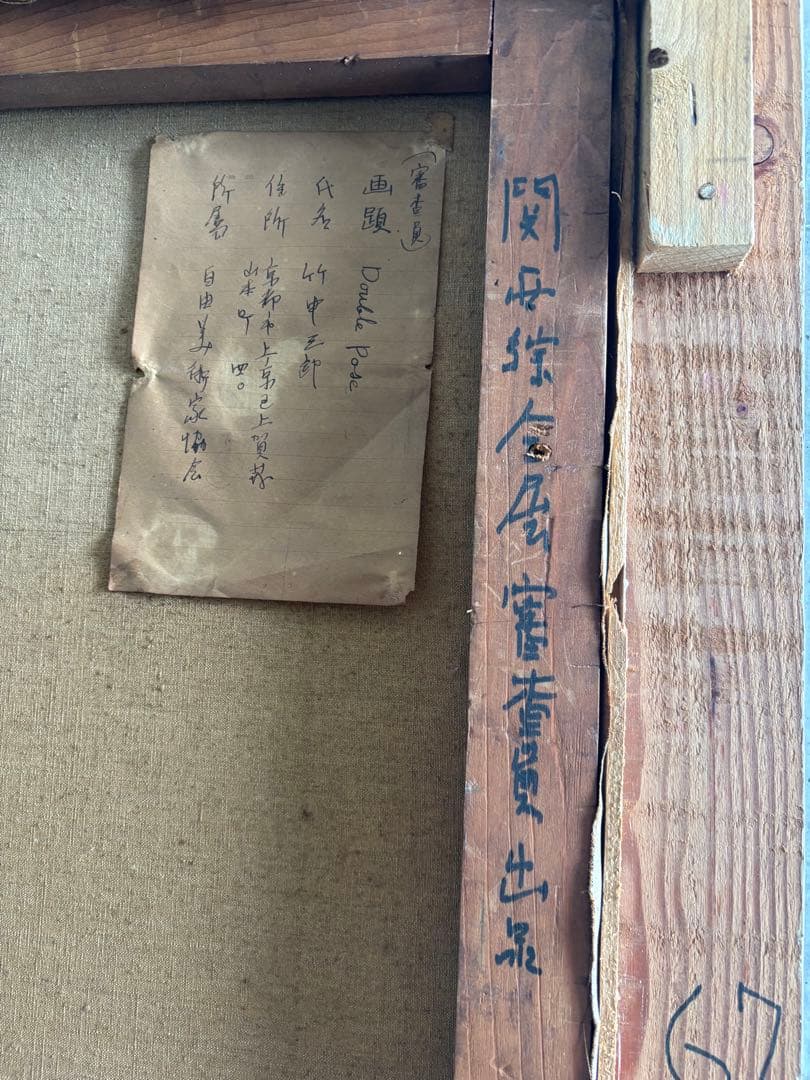 関西綜合展審査員出品
(審査員)
画題 Double Pose
氏名 竹中三郎
住所 京都市上京区上賀茂
山本町 四〇
所属 自由美術家協会
67